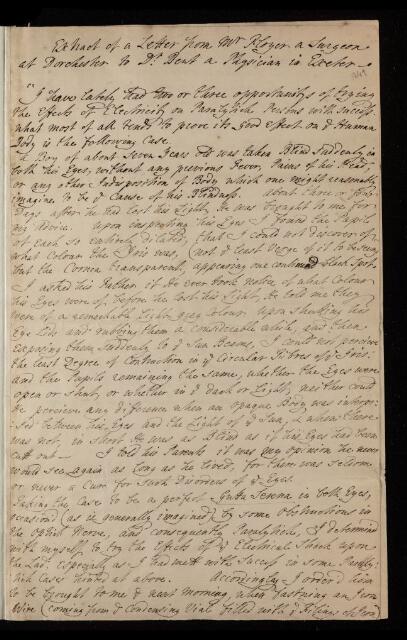 Extract of a Letter from Mr. Floyer a Surgeon
at Dorchester to Dr. Bent a Physician in Exeter
I have lately had two or three opportunitys of trying
the Effects of Electricity on Paralytick Persons with Success.
what most of all tends to prove its good effect on ye Human
Body is the following Case.
A Boy of about Seven Years Old was taken Blind Suddenly in
both his Eyes, without any previous Fever, Pains of his Head
or any other Indisposition of Body which one might reasonably
imagine to be ye Cause of his Blindness. about three or four
Days after he had lost his Sight, He was brought to me for
my Advice. upon inspecting his Eyes I found the Pupil
of Each so entirely dilated, that I could not discover of
what Colour the Iris was, (not ye least Verge of it to be seen)
but the Cornea transparent, appearing one continued black Spot.
I asked his Father if He ever took notice of what Colour
his Eyes were of, before he lost his Sight, He told me they
were of a remarkable Light grey Colour. Upon Shutting his
Eye Lids and rubbing them a considerable while, and then
exposing them Suddenly to ye Sun Beams, I could not perceive
the least Degree of Contraction in ye Circular Fibres of ye Iris:
and the Pupils remaining the same, whether the Eyes were
open or shut, or whether in ye dark or Light, neither could
he perceive any difference when an opaque Body was interpo
sed between his Eyes and the Light of ye Sun, & when there
was not, in short He was as Blind as if his Eyes had been
cut out — I told his Parents it was my opinion he never
would See again as long as he lived, for there was seldom
or never a Cure for such Disorders of ye Eyes.
Taking the Case to be a perfect Gutta Serena in both Eyes,
occasiond (as is generally imagined) by some obstructions in
the Optick Nerve, and consequently Paralytick, I determind
with myself to try the Effects of ye Electrical Shock upon
the Lad, especially as I had mett with Success in some Paraly-
tick Cases hinted at above. Accordingly I orderd him
to be brought to me ye next Morning, when fastning an Iron
Wire (coming from ye condensing Vial filled with ye Filings of Iron)